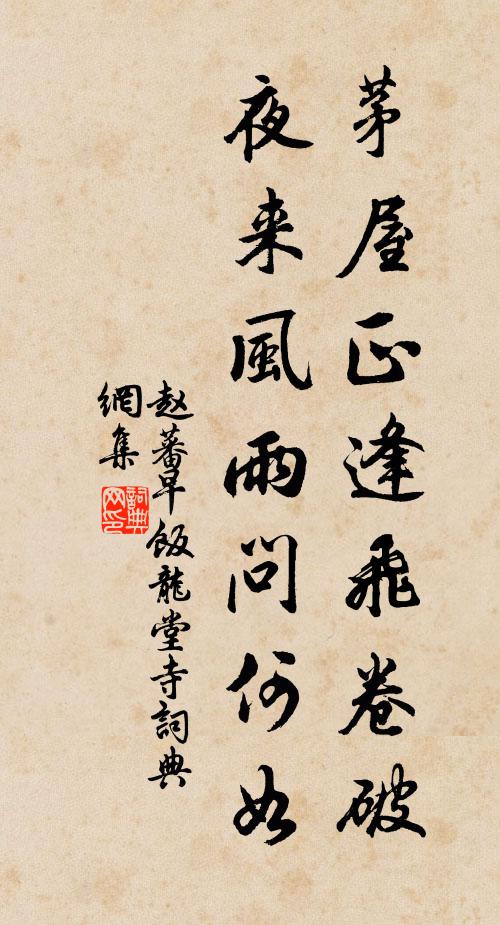 茅屋正逢飛卷破
夜来風雨問何如
赵蕃早飯龍堂寺詞典
網集
詞典
网印